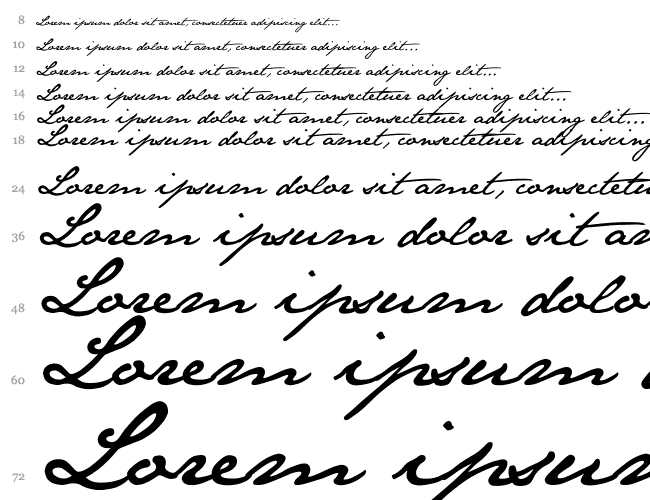 8 Lorem ipsum dolor sit amet, consectetuer adipiscing elit...
10 Lorem ipsum dolor sit amet, consectetuer adipiscing elit...
12 Lorem ipsum dolor sit amet, consectetuer adipiscing elit...
14 Lorem ipsum dolor sit amet, consectetuer adipiscing elit...
16 Lorem ipsum dolor sit amet, consectetuer adipiscing elit...
18 Lorem ipsum dolor sit amet, consectetuer adipiscing
24 Lorem ipsum dolor sit amet, consectetu
36 Lorem ipsum dolor sit am
48 Lorem ipsum dolo
60 Lorem ipsum
72 Lorem ipsum